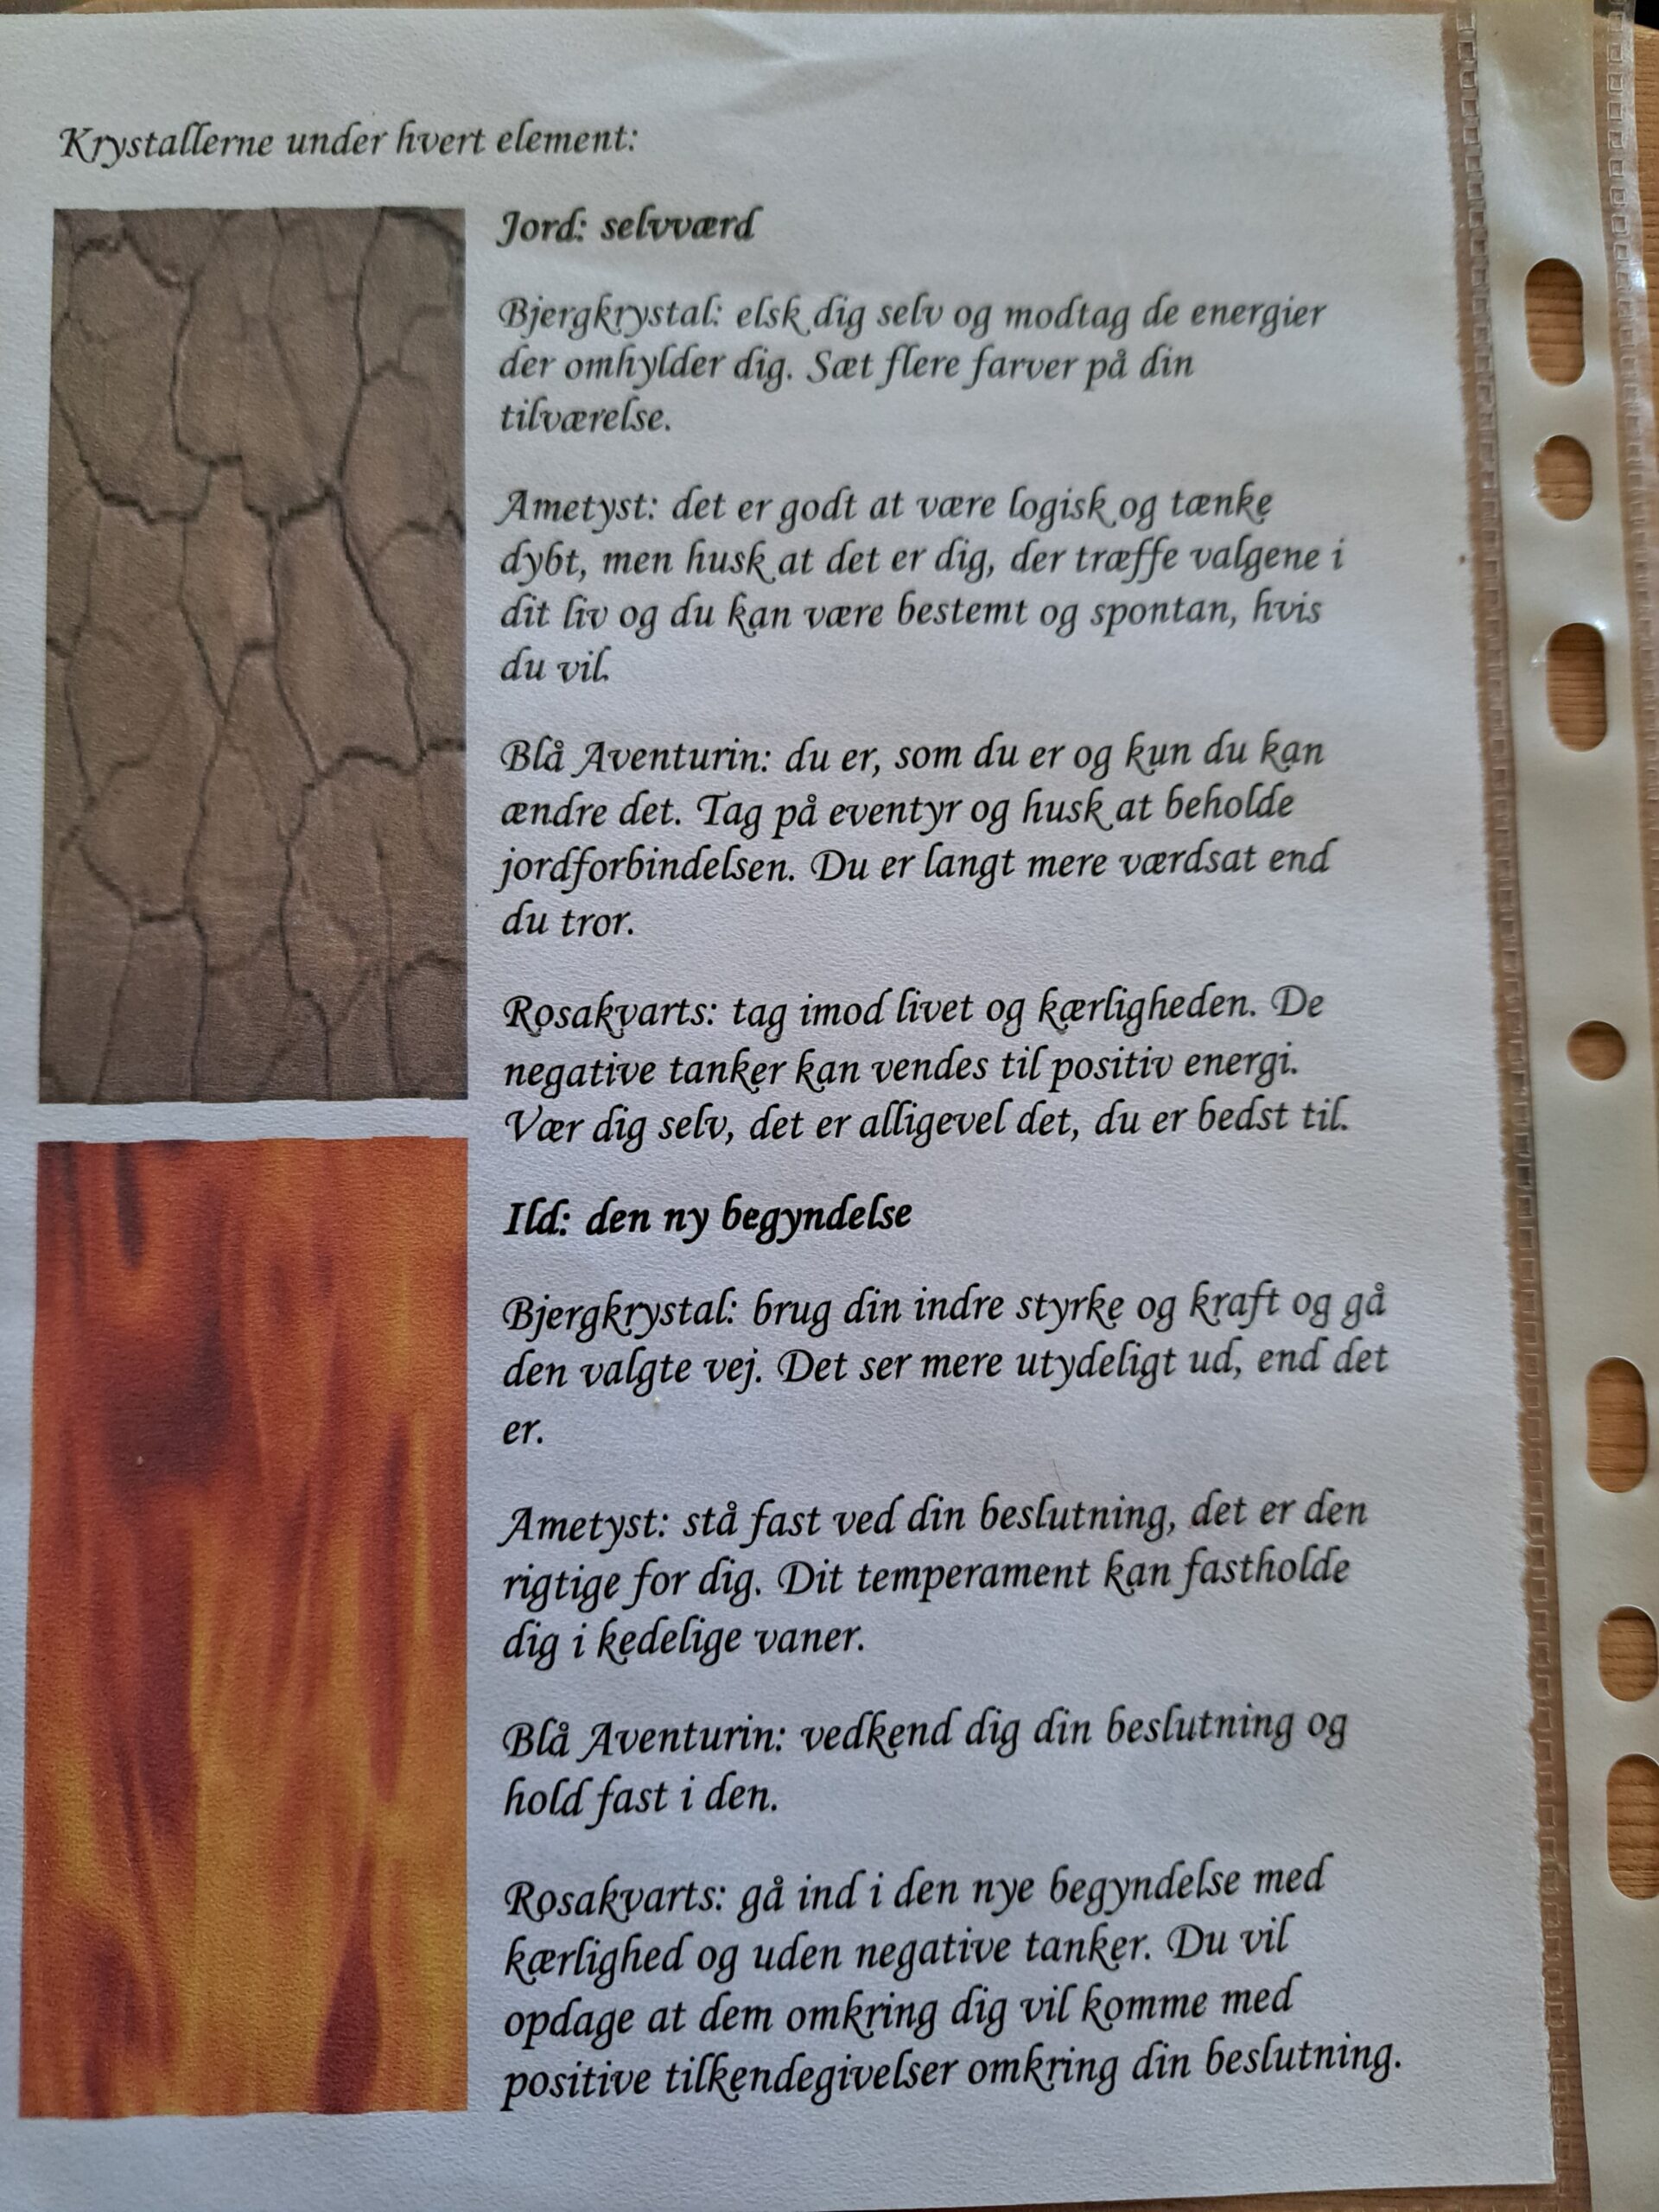 Krystallerne under hvert element:
Jord: selvværd
Bjergkrystal: elsk dig selv og modtag de energier
der omhylder dig. Sæt flere farver på din
tilværelse.
Ametyst: det er godt at være logisk og tænke
dybt, men husk at det er dig, der træffe valgene i
dit liv og du kan være bestemt og spontan, hvis
du vil.
Blå Aventurin: du er, som du er og kun du kan
ændre det. Tag på eventyr og husk at beholde
jordforbindelsen. Du er langt mere værdsat end
du tror.
Rosakvarts: tag imod livet og kærligheden. De
negative tanker kan vendes til positiv energi.
Vær dig selv, det er alligevel det, du er bedst til.
Ild: den ny begyndelse
Bjergkrystal: brug din indre styrke og kraft og gå
den valgte vej. Det ser mere utydeligt ud, end det
er.
Ametyst: stå fast ved din beslutning, det er den
rigtige for dig. Dit temperament kan fastholde
dig i kedelige vaner.
Blå Aventurin: vedkend dig din beslutning og
hold fast i den.
Rosakvarts: gå ind i den nye begyndelse med
kærlighed og uden negative tanker. Du vil
opdage at dem omkring dig vil komme med
positive tilkendegivelser omkring din beslutning.